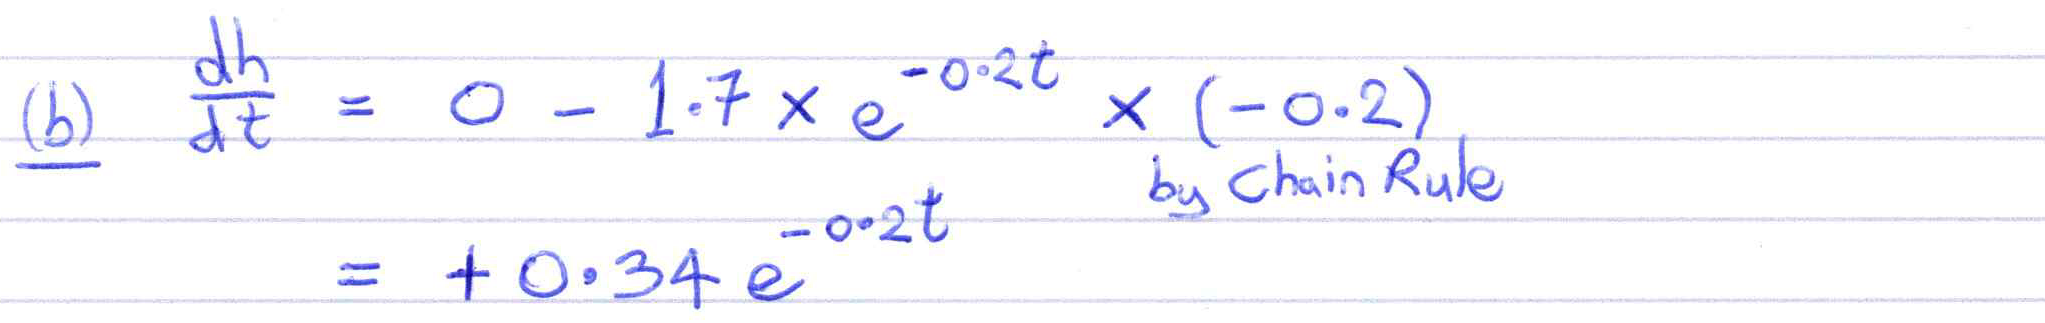 (b) dh/dt = 0 - 1.7 × e^-0.2t × (-0.2)
by Chain Rule
= + 0.34 e^-0.2t